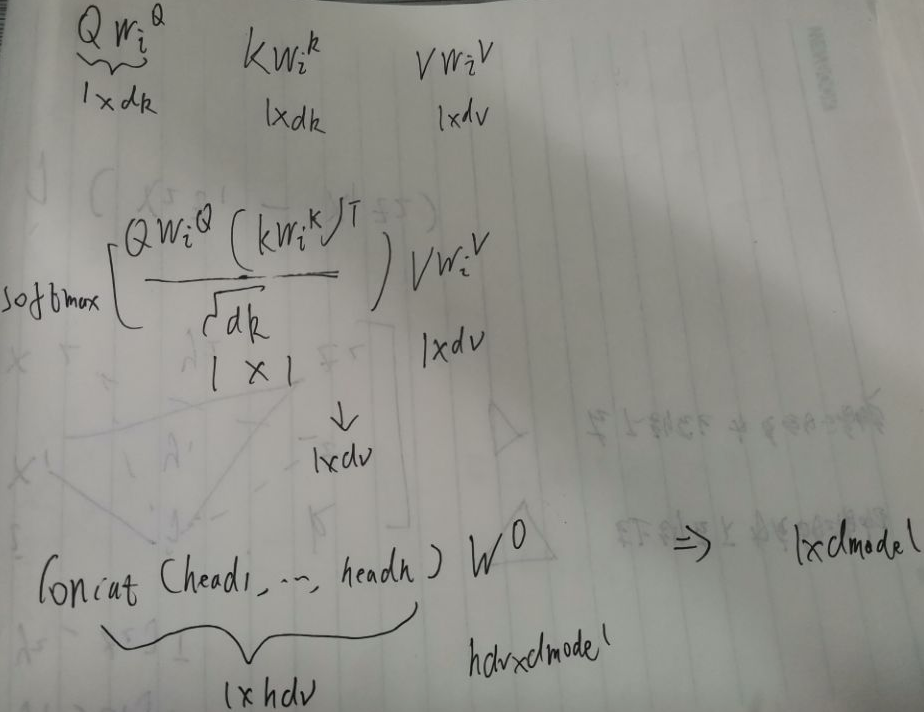 QWᵢ^Q KWᵢ^K VWᵢ^V
1×dk 1×dk 1×dv
softmax[QWᵢ^Q (KWᵢ^K)^T / √dk) VWᵢ^V
1 × 1 1×dv
↓
1×dv
Concat (head1, ..., headh) W^O ⇒ 1×dmodel
1×hdv hdv×dmodel